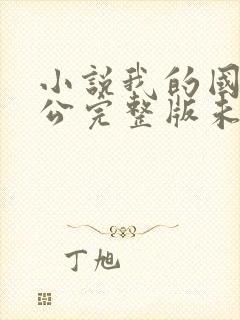 小说我的国
公完整版未
丁旭